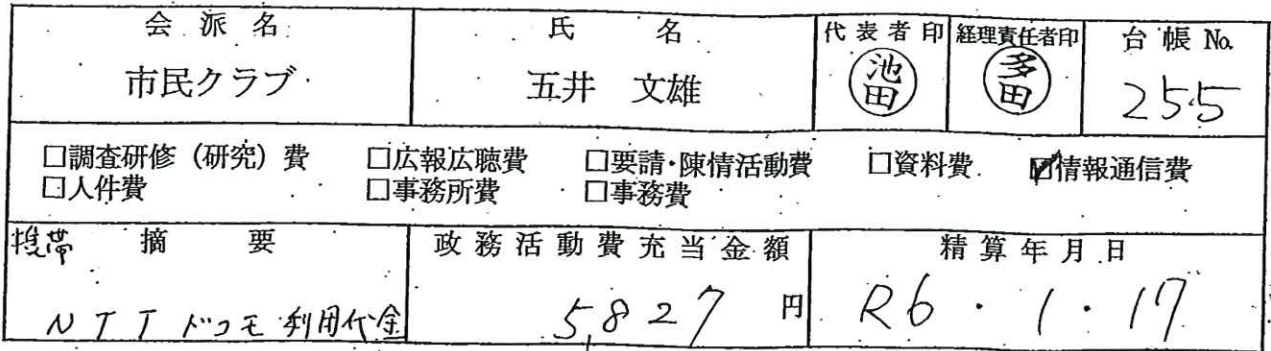 会派名 氏名 代表者印 経理責任者印 台帳No.
市民クラブ 五井 文雄 池田 多田 255
□調査研修(研究)費 □広報広聴費 □要請・陳情活動費 □資料費 ☑情報通信費
□人件費 □事務所費 □事務費
携帯 摘要 政務活動費充当金額 精算年月日
NTTドコモ利用代金 5,827円 R6・1・17